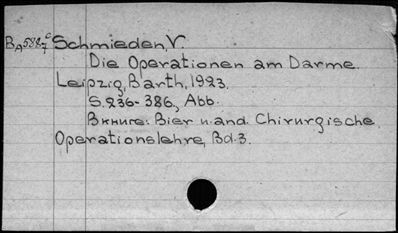 Schmieden, V.
Die Operationen am Darme.
Leipzig, Barth, 1923.
S. 236-386., Abb.
Вкниге: Bier u. and. Chirurgische
Operationslehre, Bd. 3.